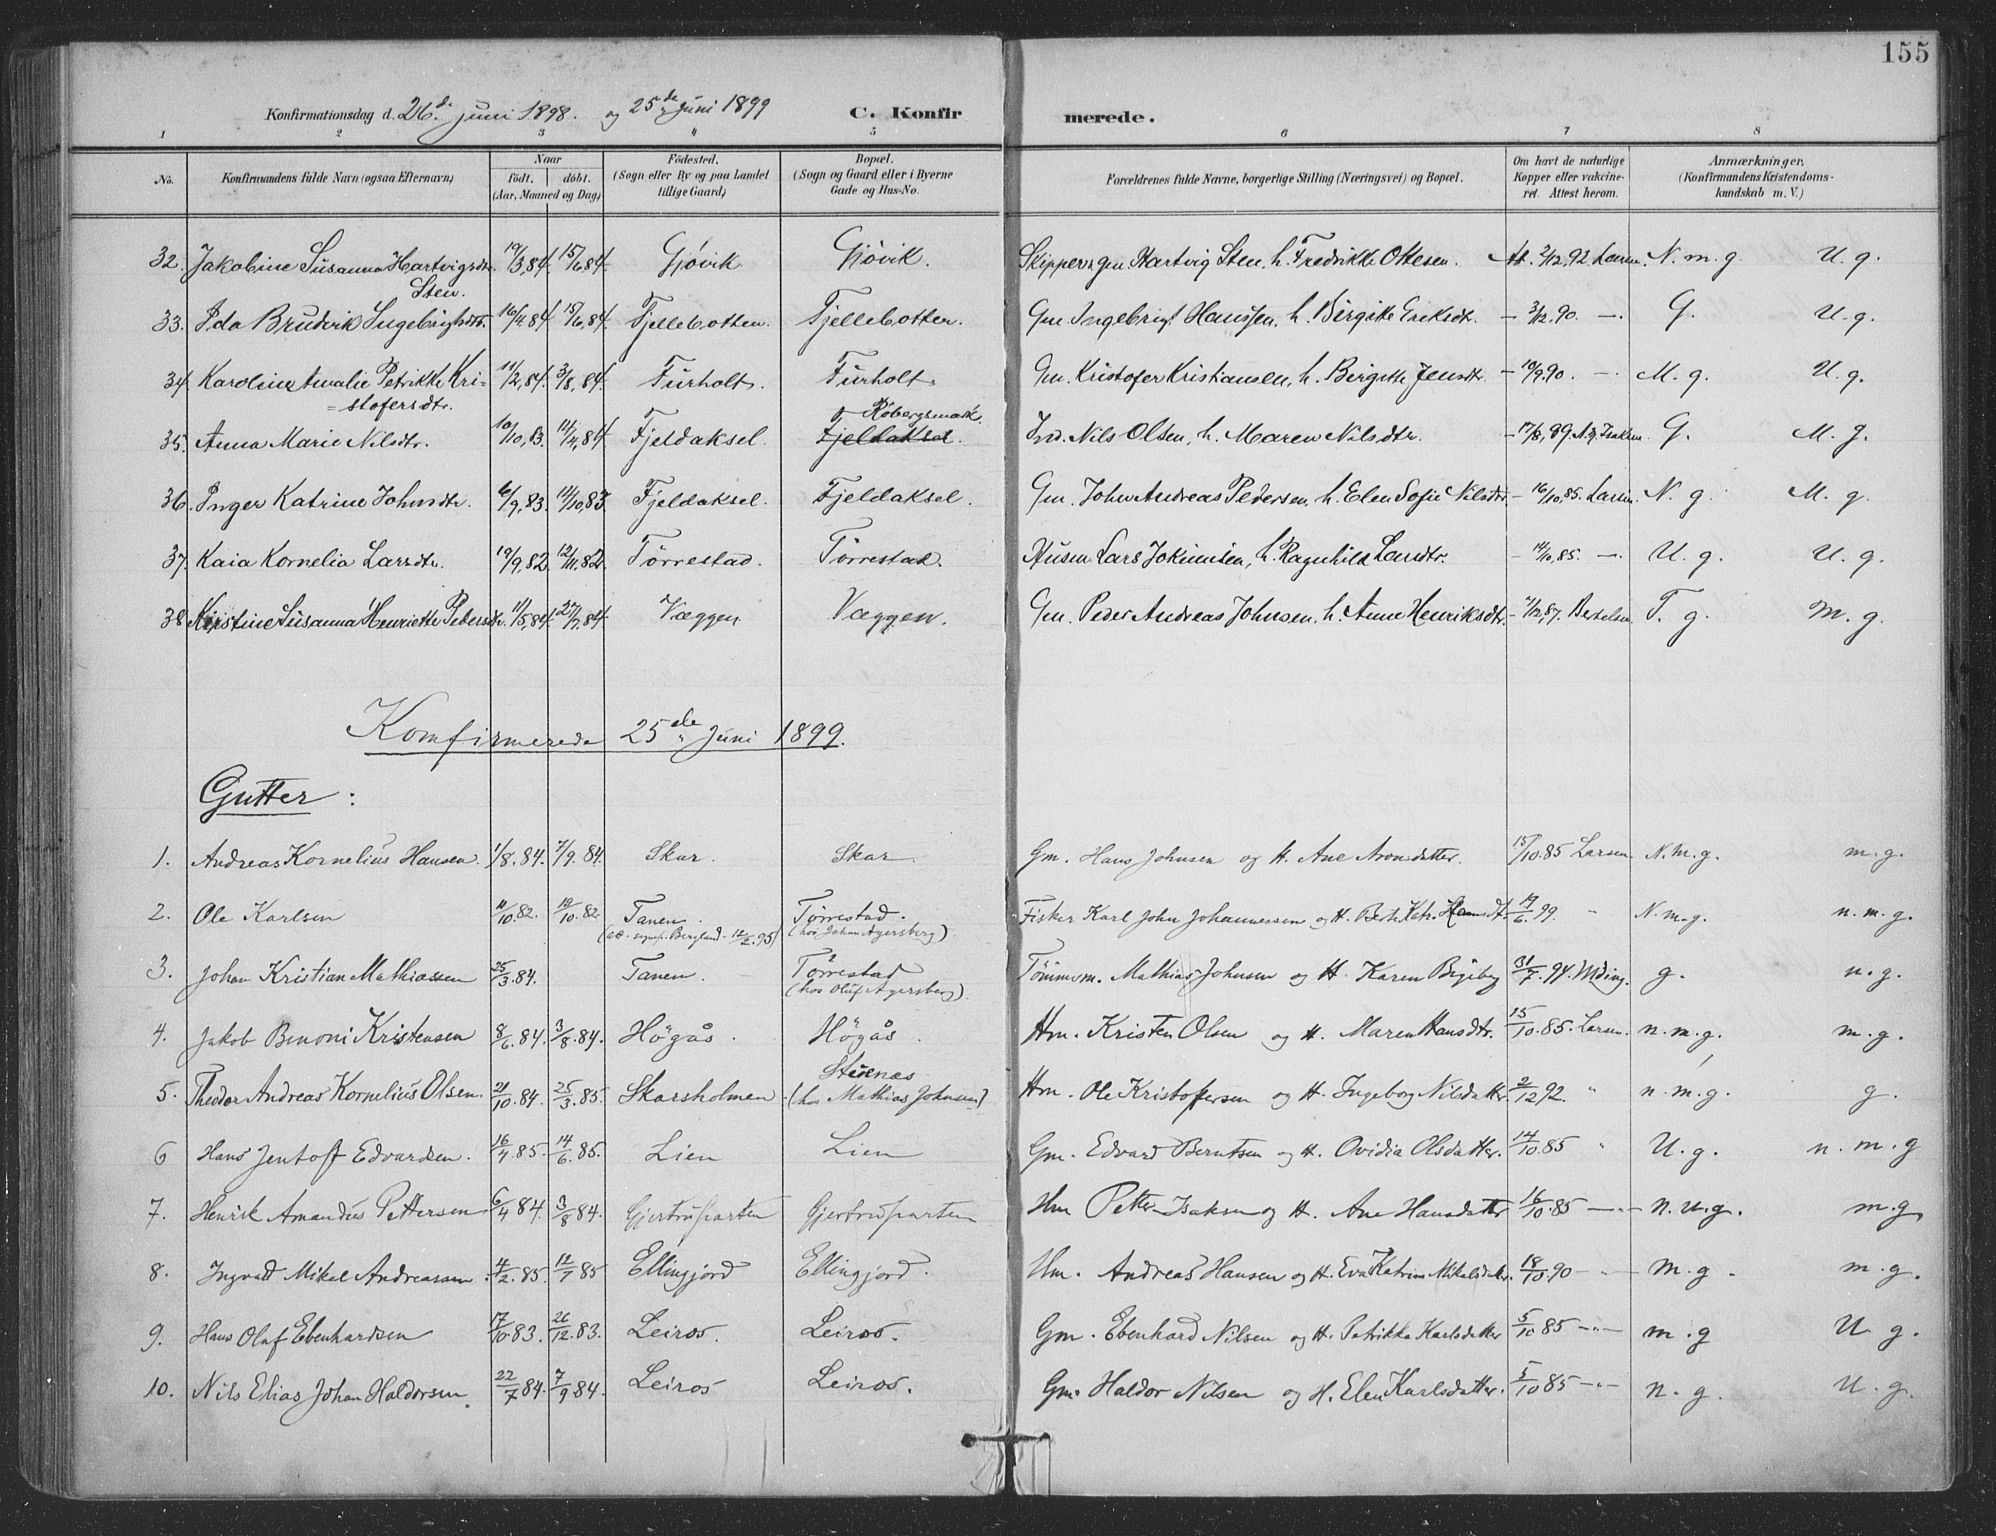 155
Konfirmationsdag d. 26.de Juni 1898. og 25de Juni 1899 C. Konfirmerede.
1 2 3 4 5 6 7 8
No. Konfirmandens fulde Navn (ogsaa Efternavn) Naar født. døbt. (Aar, Maaned og Dag) Fødested. (Sogn eller By og paa Landet tillige Gaard) Bopæl. (Sogn og Gaard eller i Byerne Gade og Hus-No. Forældrenes fulde Navne, borgerlige Stilling (Næringsvei) og Bopæl. Om havt de naturlige Kopper eller vakcineret. Attest herom. Anmærkninger. (Konfirmandens Kristendomskundskab m. V.)
32. Jakobine Susanna Hartvigsdtr. Sten. 19/3.84. 15/6.84. Gjøvik Gjøvik. Skipper & gm Hartvig Sten, h. Fredrikke Ottesen. At. 2/12.92 Larsen. N. m. g. U. g.
33. Ida Bruderik Ingebrigtsdtr. 16/4.84. 15/6.84. Fjellebotten. Fjellebotten. Gm. Ingebrigt Hanssen, h. Birgitte Eriksdtr. — 3/12.90. — G. U. g.
34. Karoline Amalie Petrikke Kri-
=stofersdtr. 11/2.84. 3/8.84. Furholt. Furholt. Gm. Kristofer Kristiansen, h. Birgitte Jensdtr. — 10/9.90. — M. g. U. g.
35. Anna Marie Nilsdtr. 10/10.83. 14/4.84. Fjeldaksel. Røbergsmark. Fjeldaksel. Ind. Nils Olsen, h. Maren Nilsdtr. — 17/8.89 Isaksen. G. M. g.
36. Inger Katrine Johnsdtr. 6/9.83. 14/10.83. Fjeldaksel. Fjeldaksel. Gm. John Andreas Pedersen, h. Elen Sofie Nilsdtr. — 16/10.85. Larsen. N. g. M. g.
37. Kaia Kornelia Larsdtr. 19/9.82. 12/11.82. Tørrestad. Tørrestad. Husm. Lars Jokumsen, h. Ragnhild Larsdtr. — 14/10.85. — U. g. U. g.
38. Kristine Susanna Henriette Pedersdtr. 11/5.84. 27/7.84. Væggen Væggen. Gm. Peder Andreas Johnsen, h. Anne Henriksdtr. — 7/12.87. Bertelsen. T. g. M. g.
Konfirmerede 25de Juni 1899.
Gutter:
1. Andreas Kornelius Hansen. 1/8.84. 7/9.84. Skar. Skar. Gm. Hans Johnsen og H. Ane Aronsdatter. 15/10.85 Larsen N. m. g. m. g.
2. Ole Karlsen 11/10.82. 19/10.82 Tanen. (att. sognepr. Bergland. 12/2.95) Tørrestad. (hos Johan Agersberg) Fisker Karl John Johannessen og H. Berte Katr. Hansdt. 19/6.99. " N. m. g. n. m. g.
3. Johan Kristian Mathiassen 25/3.84. Tanen. Tørrestad (hos Oluf Agersberg). Tømmerm. Mathias Johnsen og H. Karen Bigsby 31/7.94. g. n. g.
4. Jakob Benoni Kristensen 8/6.84. 3/8.84. Högås. Högås. Hm. Kristen Olsen og H. Maren Hansdtr. 15/10.85. Larsen. n. m. g. m. g.
5. Theodor Andreas Kornelius Olsen. 21/10.84. 25/3.85. Skarsholmen Stuenes (hos Mathias Johnsen) Hm. Ole Kristofersen og H. Ingeborg Nilsdatter. 2/12 92. " n. m. g. g.
6 Hans Jentoft Edvardsen. 16/4.85. 14/6.85. Lien Lien Gm. Edvard Berntsen og H. Ovidia Olsdatter. 14/10.85 " U. g. n. m. g
7. Henrik Amandus Pettersen 6/4 84. 3/8 84. Gjertrudparten Gjertrudparten Hm Petter Isaksen og H. Ane Hansdatter 16/10.85 —"— n. u. g. m. g
8. Ingvald Mikal Andreassen. 4/2.85. 12/7 85 Ellingjord Ellingjord. Hm. Andreas Hansen og H. Eva Katrine Mikalsdatr. 18/10.90 —"— M. g. m. g.
9. Hans Olaf Ebenhardsen 17/10 83. 26/12.83. Leiros Leiros. Gm. Ebenhard Nilsen og H. Petrikka Karlsdatter 5/10 85 —"— m. g U. g.
10. Nils Elias Johan Haldorsen. 22/7 84. 7/9 84. Leiros Leiros. Gm. Haldor Nilsen og H. Elen Karlsdatter. 5/10 85 —"— n. g. U. g.